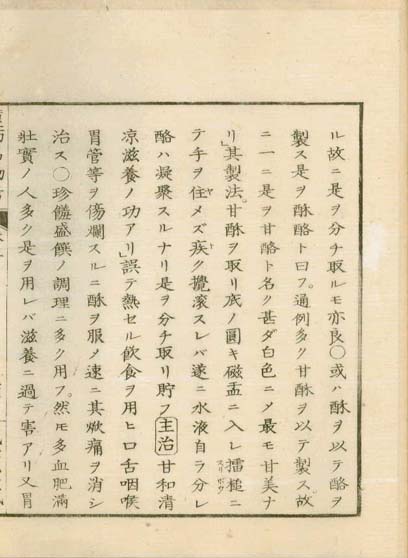 ル故ニ是ヲ分チ取ルモ亦良○或ハ酥ヲ以テ酪ヲ
製ス是ヲ酥酪ト曰フ。通例多ク甘酥ヲ以テ製ス。故
ニ一ニ是ヲ甘酪ト名ク甚ダ白色ニメ最モ甘美ナ
リ」其製法。甘酥ヲ取リ底ノ圓キ磁盂ニ入レ擂槌ニ
スリボウ
テ手ヲ住メズ疾ク攪滚スレバ遂ニ水液自ラ分レ
ヤ
酪ハ凝聚スルナリ是ヲ分チ取リ貯フ主治甘和清
凉滋養ノ功アリ」誤テ熱セル飲食ヲ用ヒ口舌咽喉
胃管等ヲ傷爛スルニ酥ヲ服メ速ニ其焮痛ヲ消シ
治ス○珍饈盛饌ノ調理ニ多ク用フ。然モ多血肥滿
壯實ノ人多ク是ヲ用レバ滋養ニ過テ害アリ又胃